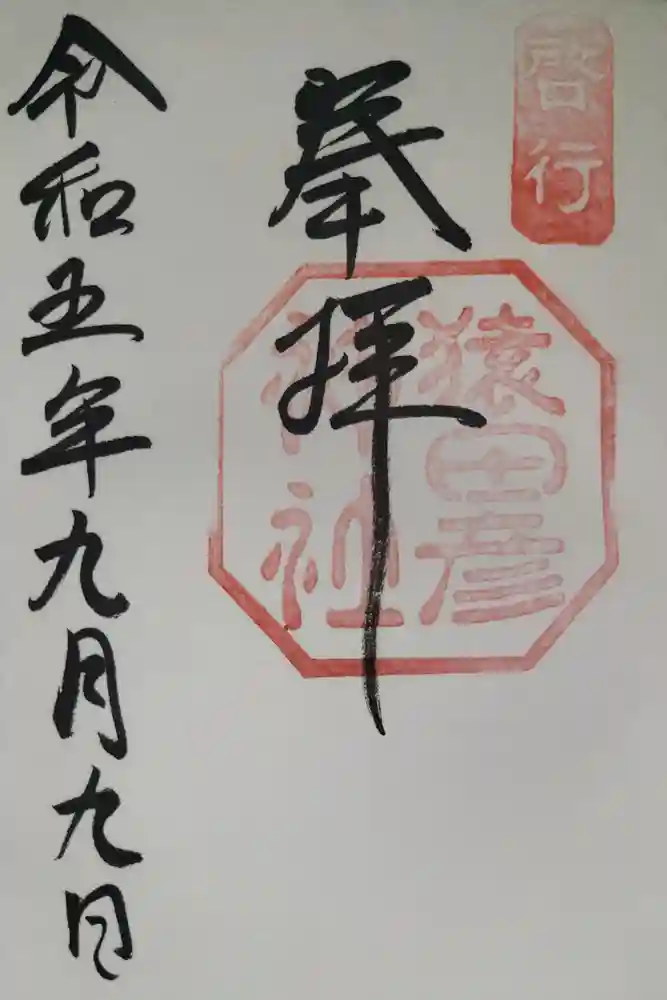 啓行
猿田彦
神社
拳拝
令和五年九月九日